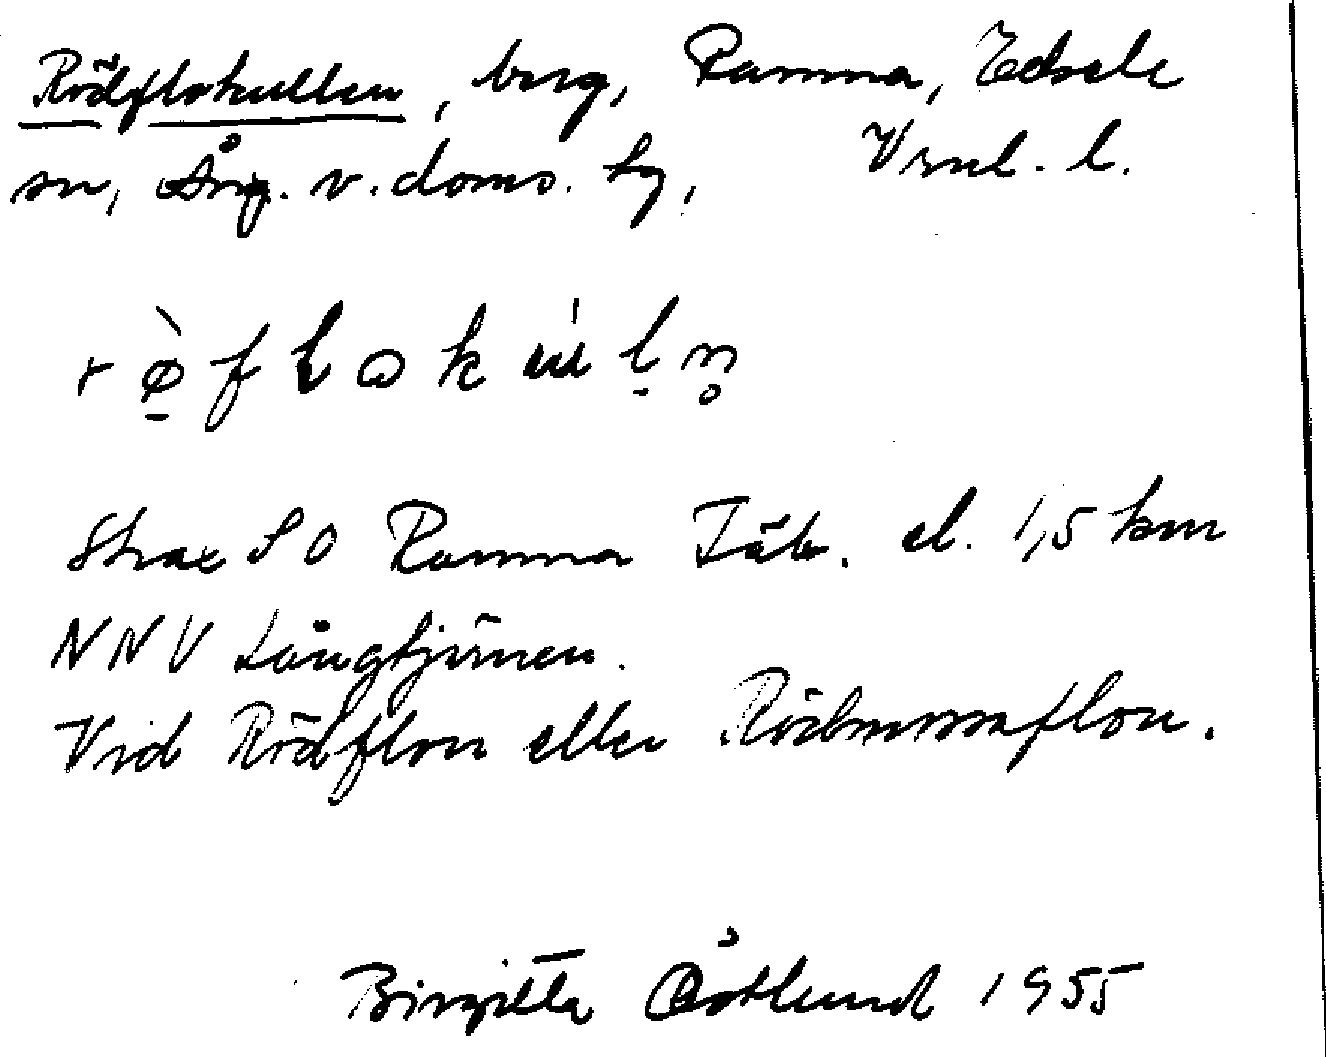 Rödflokullen, berg, Ramna, Edsele
sn, Ång. v. doms. hg, Vrnl. l.
Strax SO Ramna Täkt. el. 1,5 km
NNV Långtjärnen.
Vid Rödflon eller Rödmossaflon.
Birgitta Östlund 1955